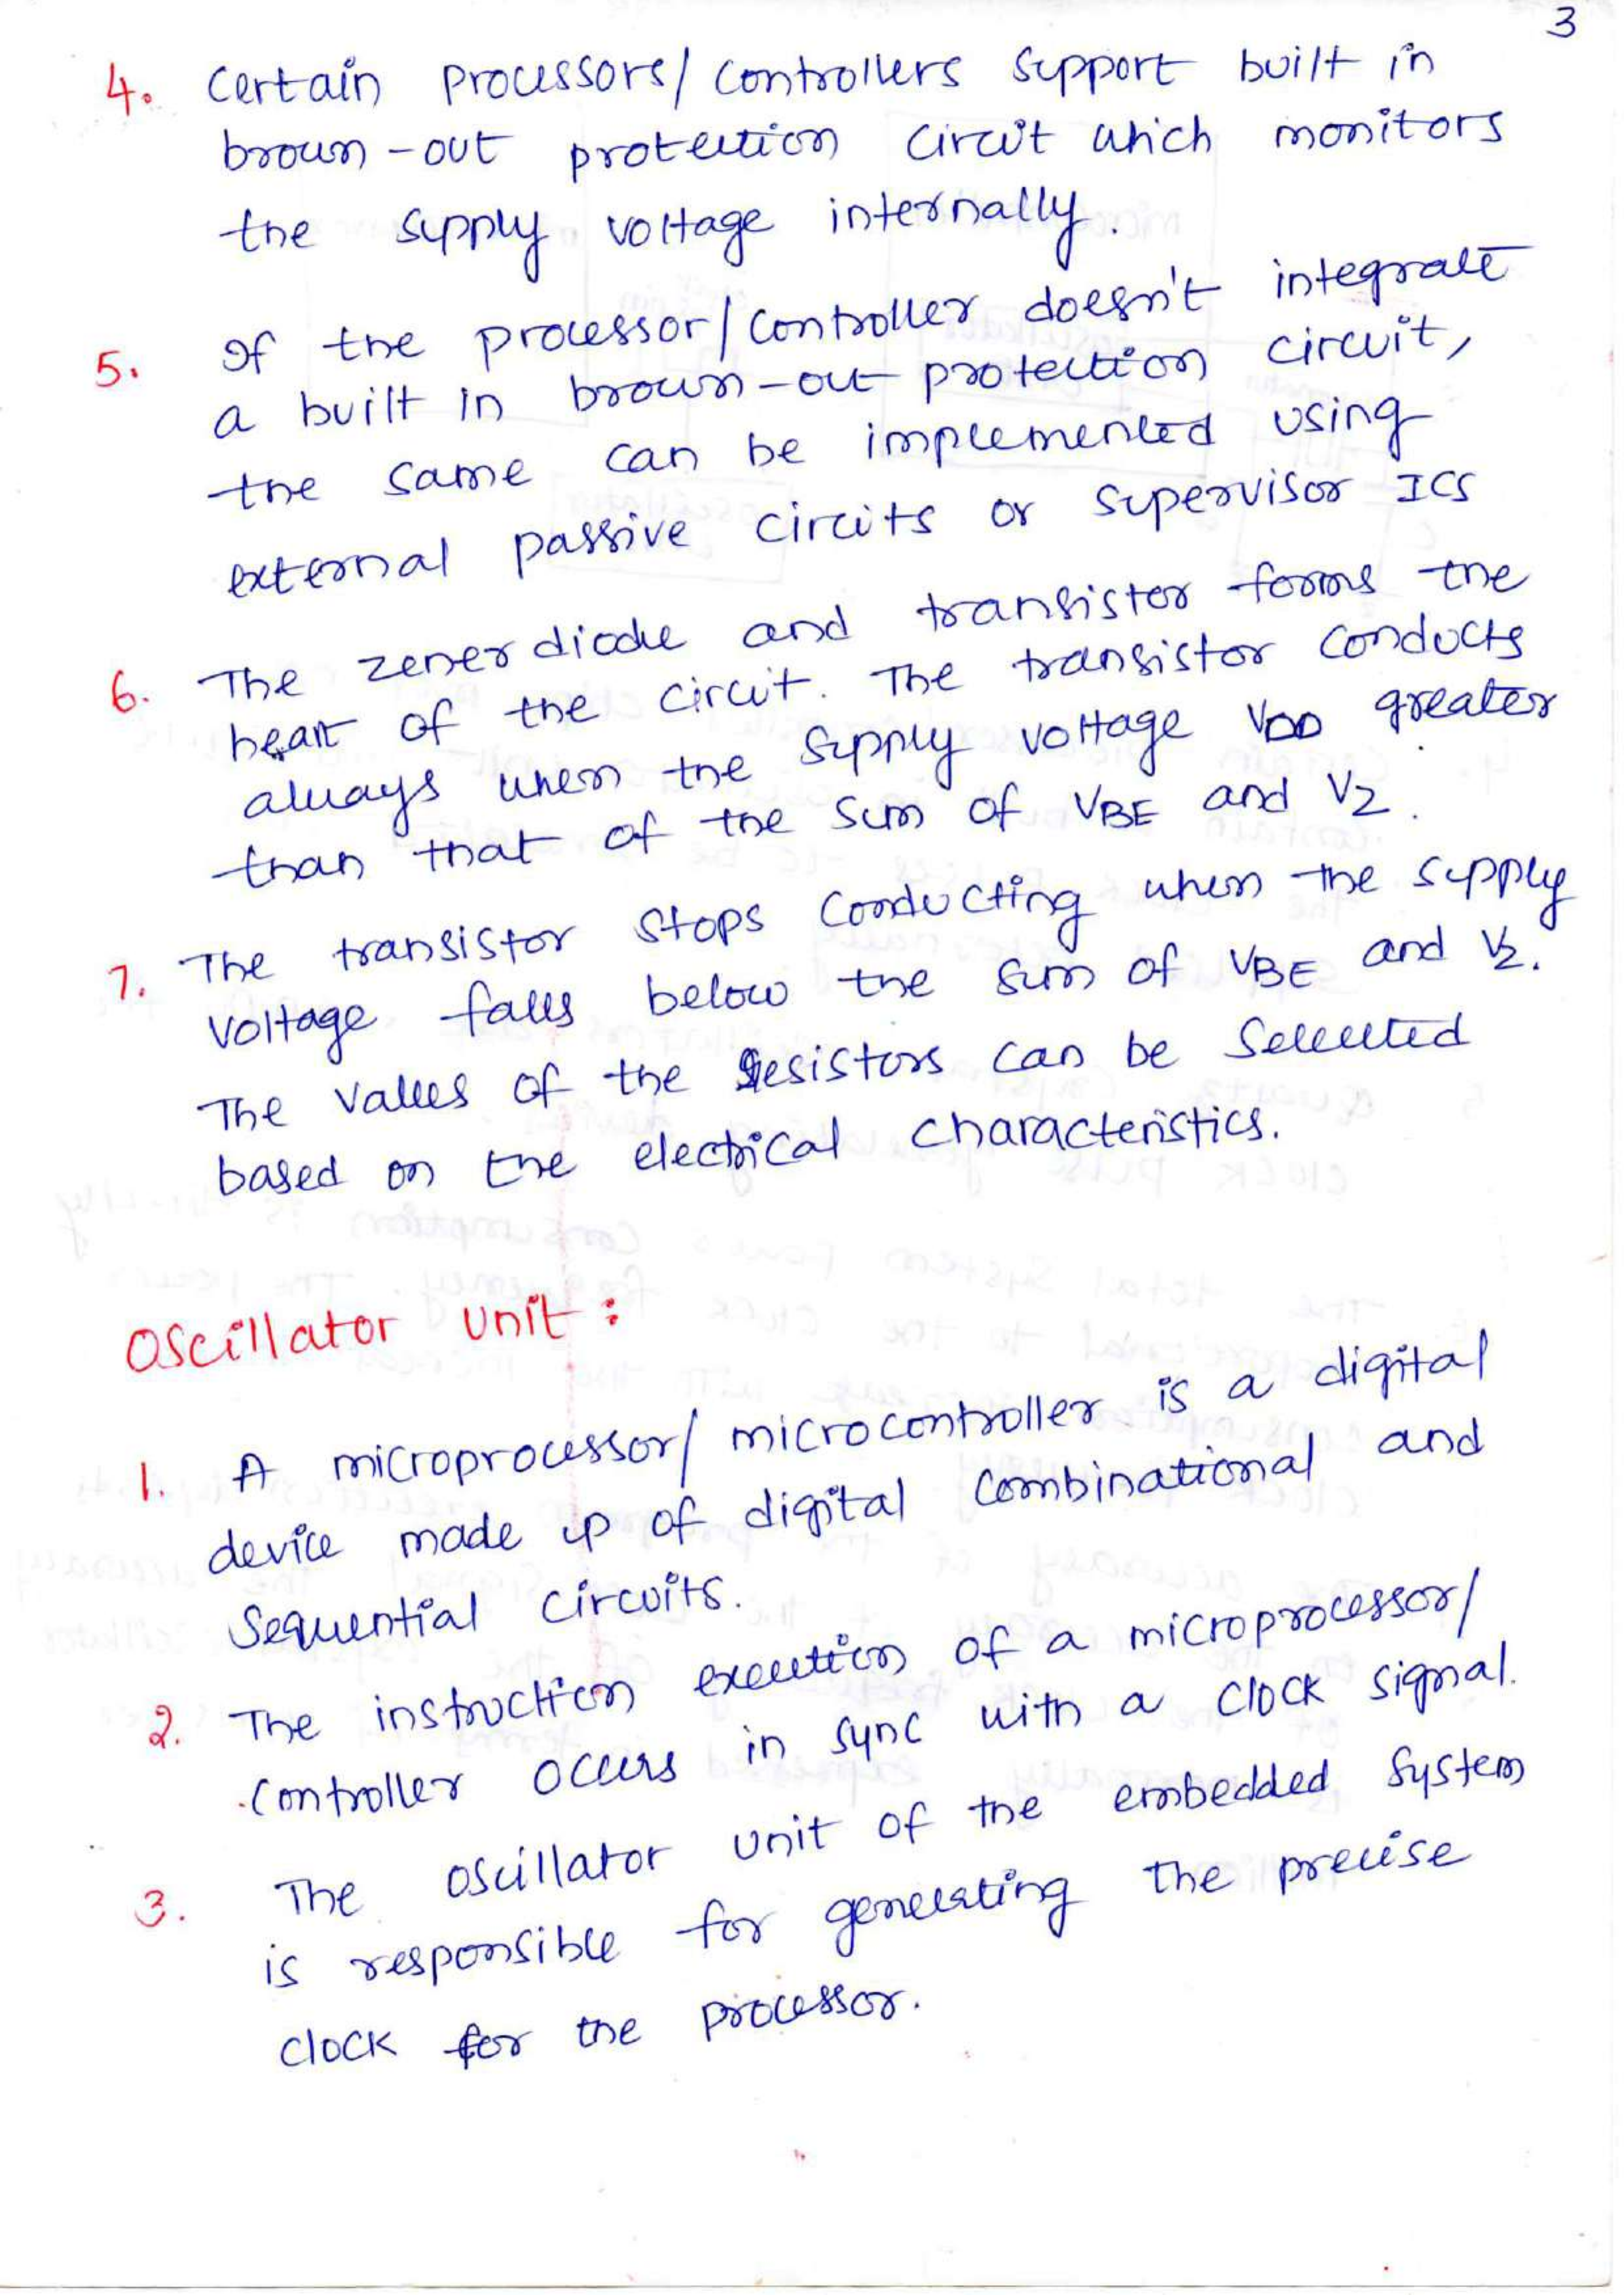 3
4. Certain processors/controllers support built in
brown-out protection circuit which monitors
the supply voltage internally.
5. If the processor/controller doesn't integrate
a built in brown-out protection circuit,
the same can be implemented using
external passive circuits or supervisor ICS
6. The zener diode and transistor forms the
heart of the circuit. The transistor conducts
always when the supply voltage VDD greater
than that of the sum of VBE and VZ.
7. The transistor stops conducting when the supply
voltage falls below the sum of VBE and VZ.
The values of the resistors can be selected
based on the electrical characteristics.
Oscillator unit :
1. A microprocessor/microcontroller is a digital
device made up of digital combinational and
sequential circuits.
2. The instruction execution of a microprocessor/
controller occurs in sync with a clock signal.
3. The oscillator unit of the embedded system
is responsible for generating the precise
clock for the processor.